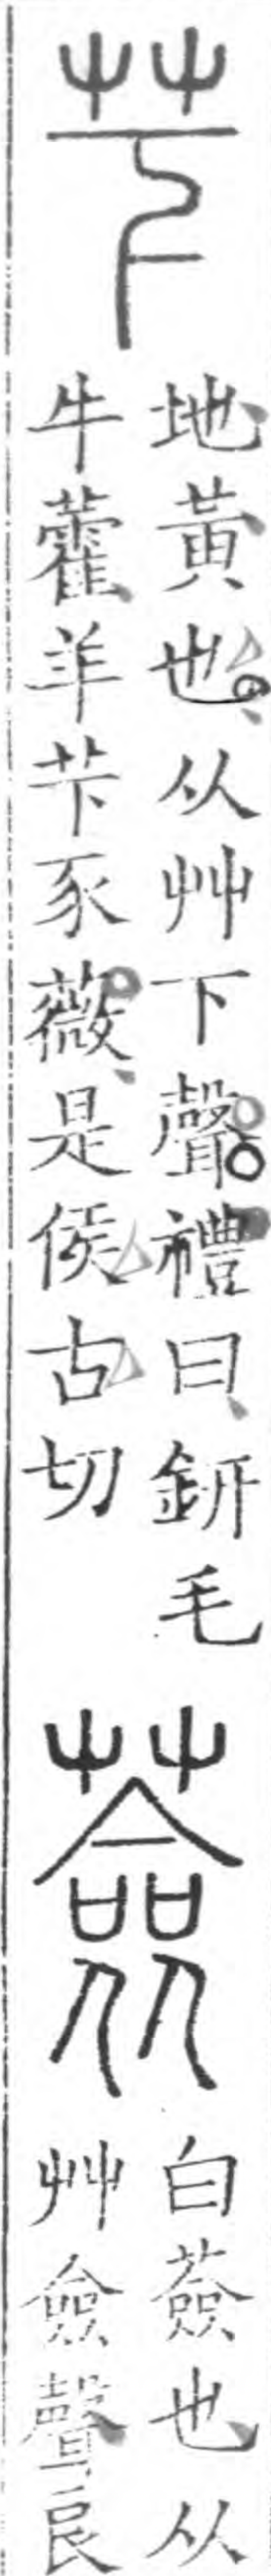 芐
地黃也从艸下聲禮曰鈃毛
牛藿羊芐豕薇是侯古切
薟
白薟也从
艸僉聲良